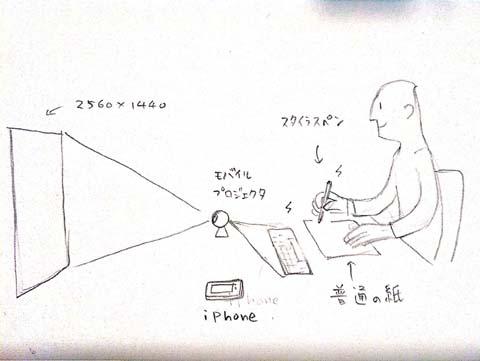 2560×1440
スタイラスペン
モバイル
プロジェクタ
普通の紙
iPhone
iPhone